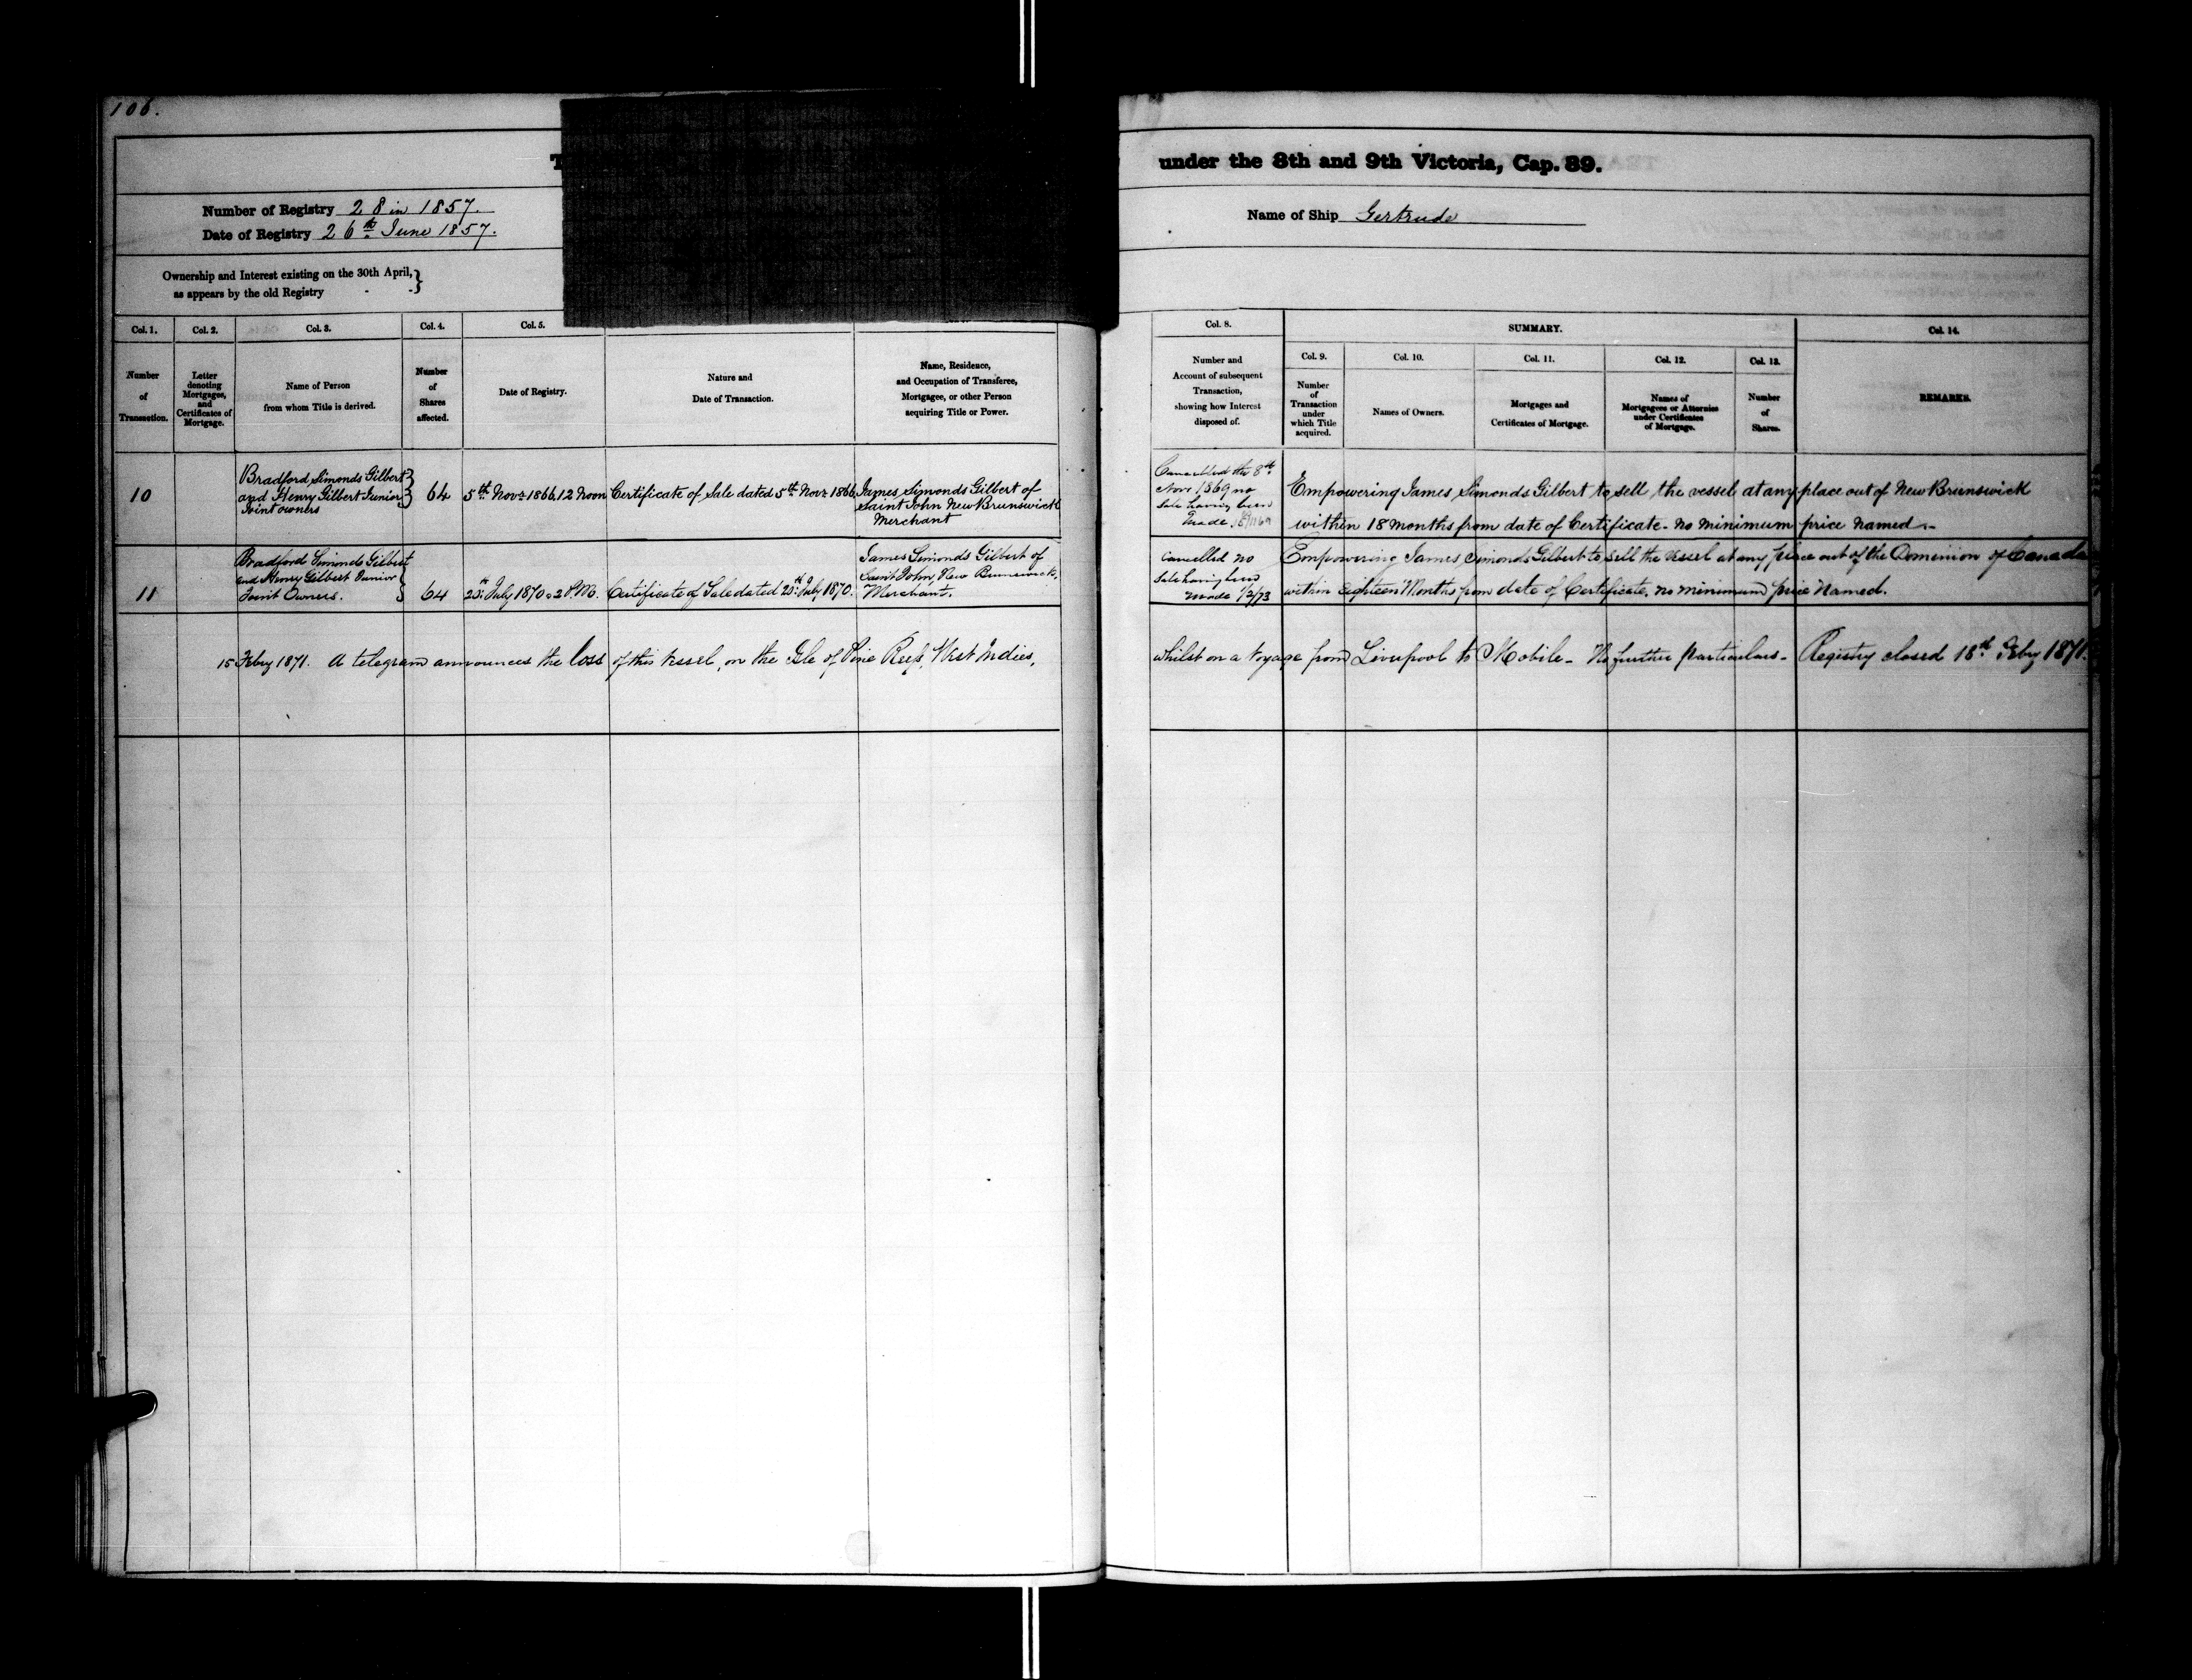 106.
under the 8th and 9th Victoria, Cap. 89.
Number of Registry 28 in 1857.
Date of Registry 26th June 1857.
Name of Ship Gertrude
Ownership and Interest existing on the 30th April,
as appears by the old Registry - - }
Col. 1.
Number
of
Transaction.
Col. 2.
Letter
denoting
Mortgages,
and
Certificates of
Mortgage.
Col. 3.
Name of Person
from whom Title is derived.
Col. 4.
Number
of
Shares
affected.
Col. 5.
Date of Registry.
Nature and
Date of Transaction.
Name, Residence,
and Occupation of Transferee,
Mortgagee, or other Person
acquiring Title or Power.
Col. 8.
Number and
Account of subsequent
Transaction,
showing how Interest
disposed of.
SUMMARY.
Col. 9.
Number
of
Transaction
under
which Title
acquired.
Col. 10.
Names of Owners.
Col. 11.
Mortgages and
Certificates of Mortgage.
Col. 12.
Names of
Mortgagees or Attornies
under Certificates
of Mortgage.
Col. 13.
Number
of
Shares.
Col. 14.
REMARKS.
10
Bradford Simonds Gilbert
and Henry Gilbert Junior
Joint owners
64
5th Novr 1866. 12 Noon
Certificate of Sale dated 5th Novr 1866
James Simonds Gilbert of
Saint John New Brunswick
Merchant
Cancelled the 8th
Novr 1869 no
Sale having been
made
Empowering James Simonds Gilbert to sell the vessel at any place out of New Brunswick
within 18 months from date of Certificate - no minimum price named -
11
Bradford Simonds Gilbert
and Henry Gilbert Junior
Joint Owners.
64
20th July 1870 @ 2 P.M.
Certificate of Sale dated 20th July 1870.
James Simonds Gilbert of
Saint John, New Brunswick,
Merchant.
Cancelled no
Sale having been
made 1/2/73
Empowering James Simonds Gilbert to sell the vessel at any place out of the Dominion of Canada
within eighteen Months from date of Certificate, no minimum price Named.
15 Feby 1871. A telegram announces the loss of this vessel, on the Isle of Pine Reef, West Indies, whilst on a voyage from Liverpool to Mobile - No further particulars - Registry closed 18th Feby 1871.